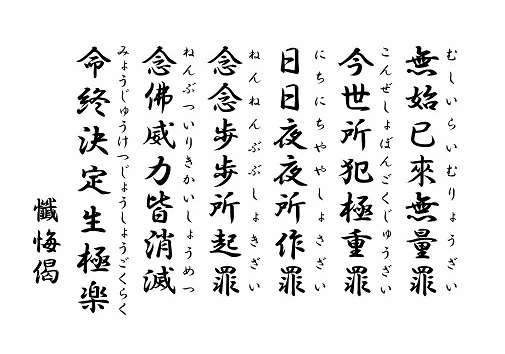 無始已來無量罪
むしいらいむりょうざい
今世所犯極重罪
こんぜしょぼんごくじゅうざい
日日夜夜所作罪
にちにちややしょさざい
念念歩歩所起罪
ねんねんぶぶしょきざい
念佛威力皆消滅
ねんぶついりきかいしょうめつ
命終決定生極楽
みょうじゅうけつじょうしょうごくらく
懺悔偈